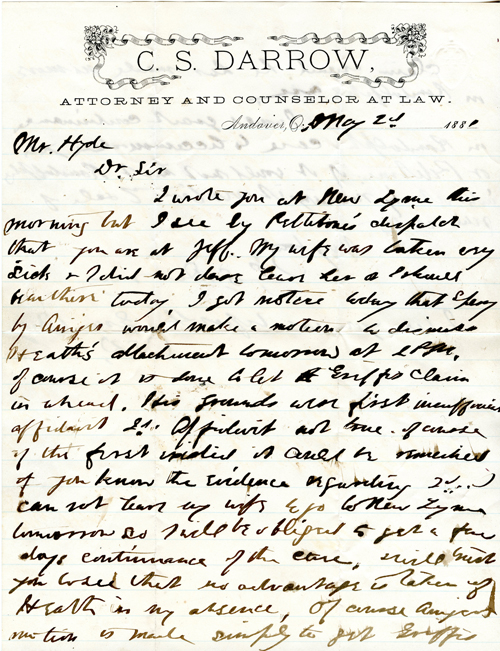 C. S. DARROW,
ATTORNEY AND COUNSELOR AT LAW.
Andover, O. May 2d 188
Mr. Hyde
Dr. Sir
I wrote you at New Lyme this
morning but I see by Pettibone's dispatch
that you are at Jeff. My wife was taken very
sick & I did not dare leave her as I should
been there today I got notice today that
by would make a motion to dismiss
Heath's attachment tomorrow at
of course it is done to let Griffis claim
in ahead. His grounds were first insufficient
affidavit 2d. Affidavit not true. of course
if the first it could be remedied
& you know the evidence regarding 2d. I
can not leave my wife & go to New Lyme
tomorrow so I will be obliged to get a few
days continuance of the case, I will trust
you to see that no advantage is taken of
Heath in my absence, Of course
motion is made simply to get Griffis